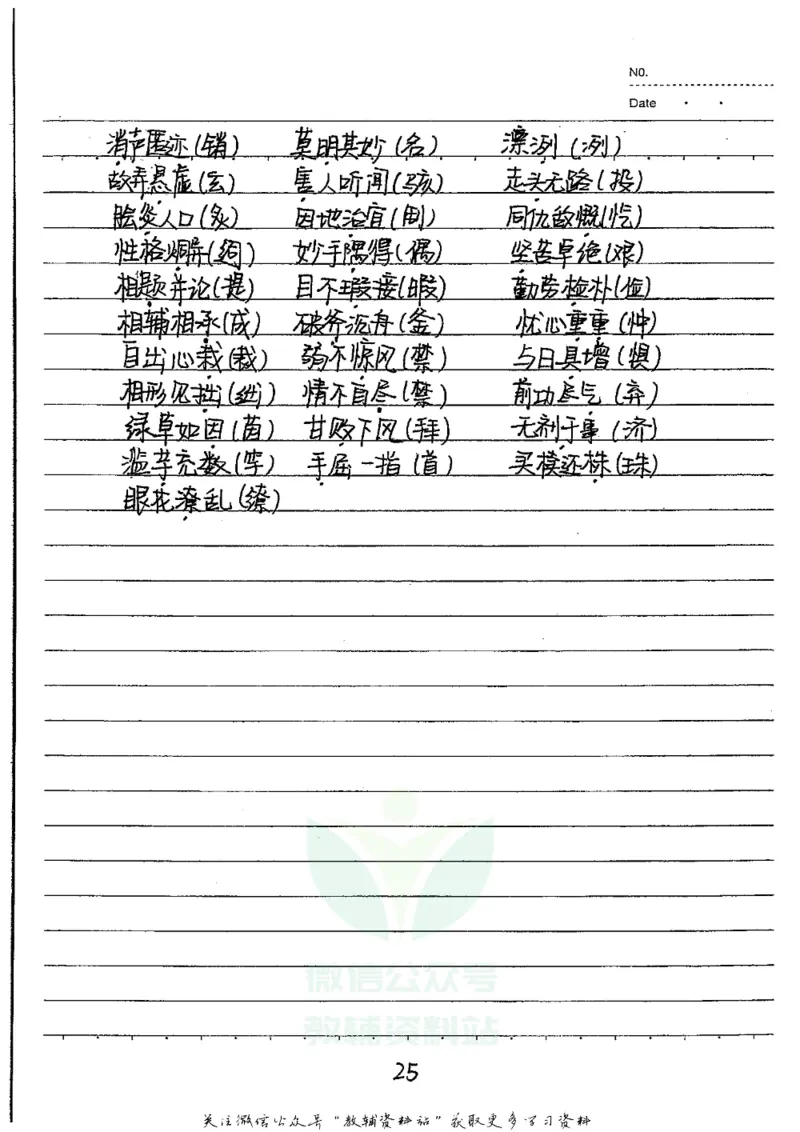 No.
Date
消声匿迹(销) 莫明其妙(名) 漂洌(冽)
故弄悬虚(玄) 害人听闻(骇) 走头无路(投)
脍炎人口(炙) 因地治宜(制) 同仇敌慨(忾)
性格炯异(迥) 妙手隅得(偶) 坚苦卓绝(艰)
相题并论(提) 目不瑕接(暇) 勤劳检朴(俭)
相辅相承(成) 破斧沉舟(釜) 忧心重重(忡)
自出心栽(裁) 弱不惊风(禁) 与日具增(俱)
相形见拙(绌) 情不自尽(禁) 前功尽气(弃)
绿草如因(茵) 甘败下风(拜) 无剂于事(济)
滥芋充数(竽) 手屈一指(首) 买模还株(珠)
眼花潦乱(缭)
微信公众号
教辅资料站
25
关注微信公众号"教辅资料站"获取更多学习资料